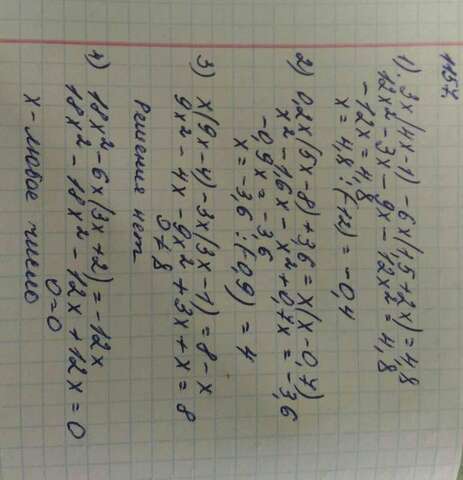 1157.
1) 3x(4x-1)-6x(1,5+2x)=4,8
12x²-3x-9x-12x²=4,8
-12x=4,8
x=4,8:(-12)=-0,4
2) 0,2x(5x-8)+3,6=x(x-0,7)
x²-1,6x-x²+0,7x=-3,6
-0,9x=-3,6
x=-3,6:(-0,9)=4
3) x(9x-4)-3x(3x-1)=8-x
9x²-4x-9x²+3x+x=8
0≠8
Решения нет
4) 18x²-6x(3x+2)=-12x
18x²-18x²-12x+12x=0
0=0
x-любое число